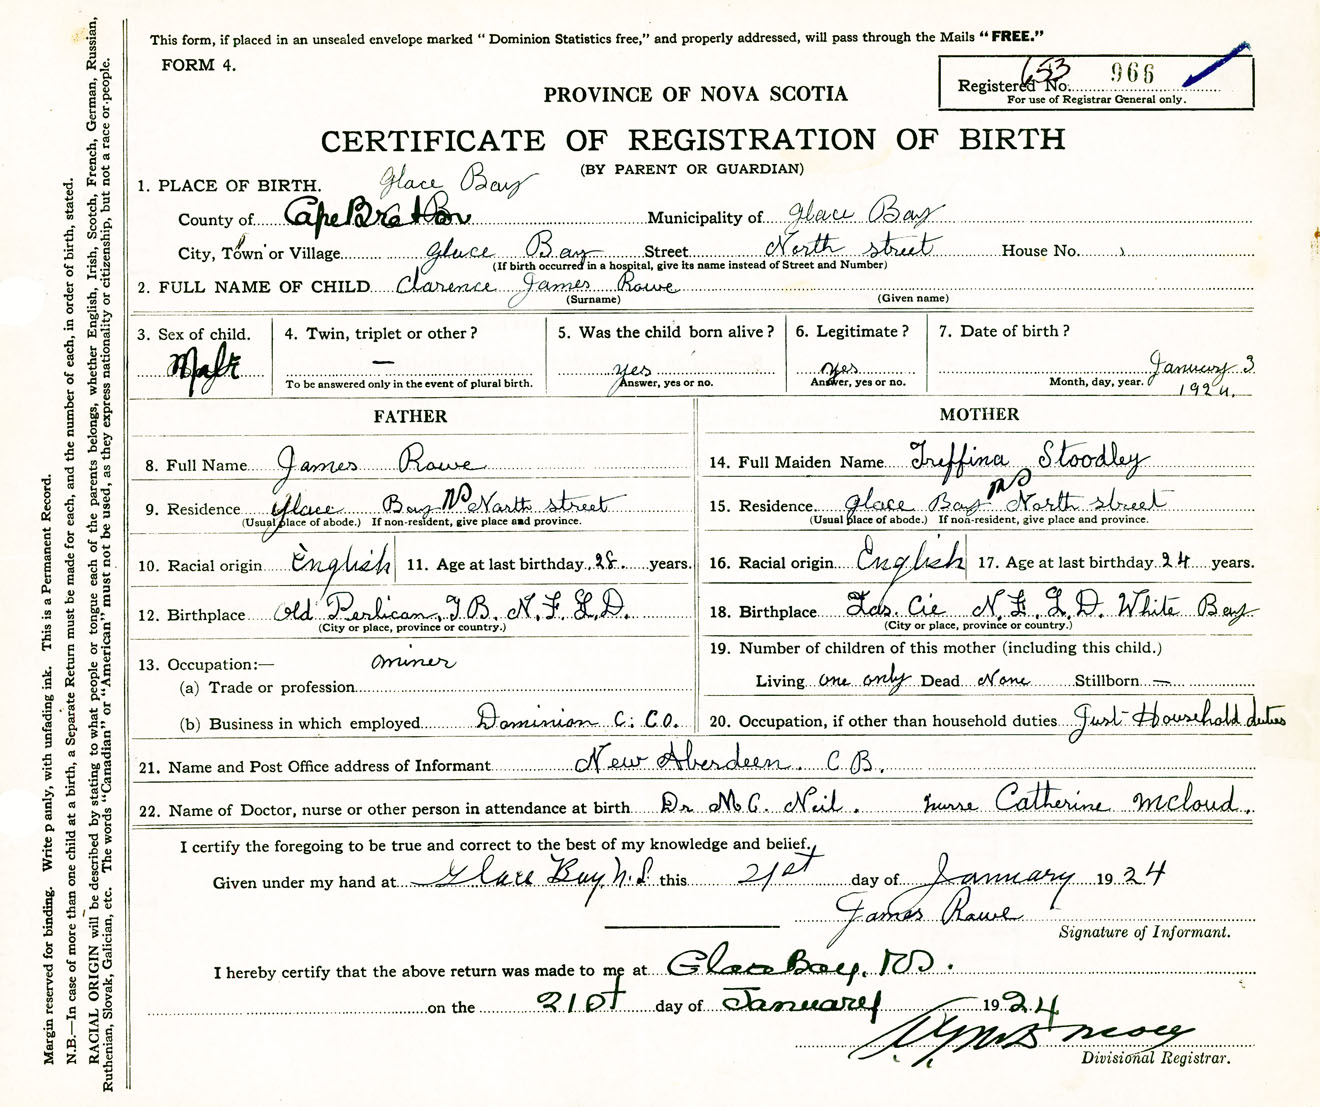 This form, if placed in an unsealed envelope marked " Dominion Statistics free," and properly addressed, will pass through the Mails "FREE."
FORM 4.
Registered No. 653 966
For use of Registrar General only.
PROVINCE OF NOVA SCOTIA
CERTIFICATE OF REGISTRATION OF BIRTH
(BY PARENT OR GUARDIAN)
1. PLACE OF BIRTH. Glace Bay
County of Cape Breton Municipality of Glace Bay
City, Town or Village Glace Bay Street North street House No.
(If birth occurred in a hospital, give its name instead of Street and Number)
2. FULL NAME OF CHILD Clarence James Rowe
(Surname) (Given name)
3. Sex of child. Male
4. Twin, triplet or other? —
To be answered only in the event of plural birth.
5. Was the child born alive? yes
Answer, yes or no.
6. Legitimate? yes
Answer, yes or no.
7. Date of birth?
Month, day, year. January 3
1924.
FATHER
8. Full Name James Rowe
9. Residence Glace Bay NS North street
(Usual place of abode.) If non-resident, give place and province.
10. Racial origin English 11. Age at last birthday 28 years.
12. Birthplace Old Perlican, T.B. N.F.L.D.
(City or place, province or country.)
13. Occupation:— miner
(a) Trade or profession
(b) Business in which employed Dominion C. Co.
MOTHER
14. Full Maiden Name Treffina Stoodley
15. Residence Glace Bay NS North street
(Usual place of abode.) If non-resident, give place and province.
16. Racial origin English 17. Age at last birthday 24 years.
18. Birthplace N.F.L.D. White Bay
(City or place, province or country.)
19. Number of children of this mother (including this child.)
Living one only Dead None Stillborn —
20. Occupation, if other than household duties Just Household duties
21. Name and Post Office address of Informant New Aberdeen. C.B.
22. Name of Doctor, nurse or other person in attendance at birth Dr Mc. Neil. nurse Catherine McLoud.
I certify the foregoing to be true and correct to the best of my knowledge and belief.
Given under my hand at Glace Bay N.S. this 21st day of January 1924
James Rowe
Signature of Informant.
I hereby certify that the above return was made to me at Glace Bay, NS.
on the 21st day of January 1924
Divisional Registrar.
Margin reserved for binding. Write plainly, with unfading ink. This is a Permanent Record.
N.B.—In case of more than one child at a birth, a Separate Return must be made for each, and the number of each, in order of birth, stated.
RACIAL ORIGIN will be described by stating to what people or tongue each of the parents belongs, whether English, Irish, Scotch, French, German, Russian,
Ruthenian, Slovak, Galician, etc. The words "Canadian" or "American" must not be used, as they express nationality or citizenship, but not a race or people.